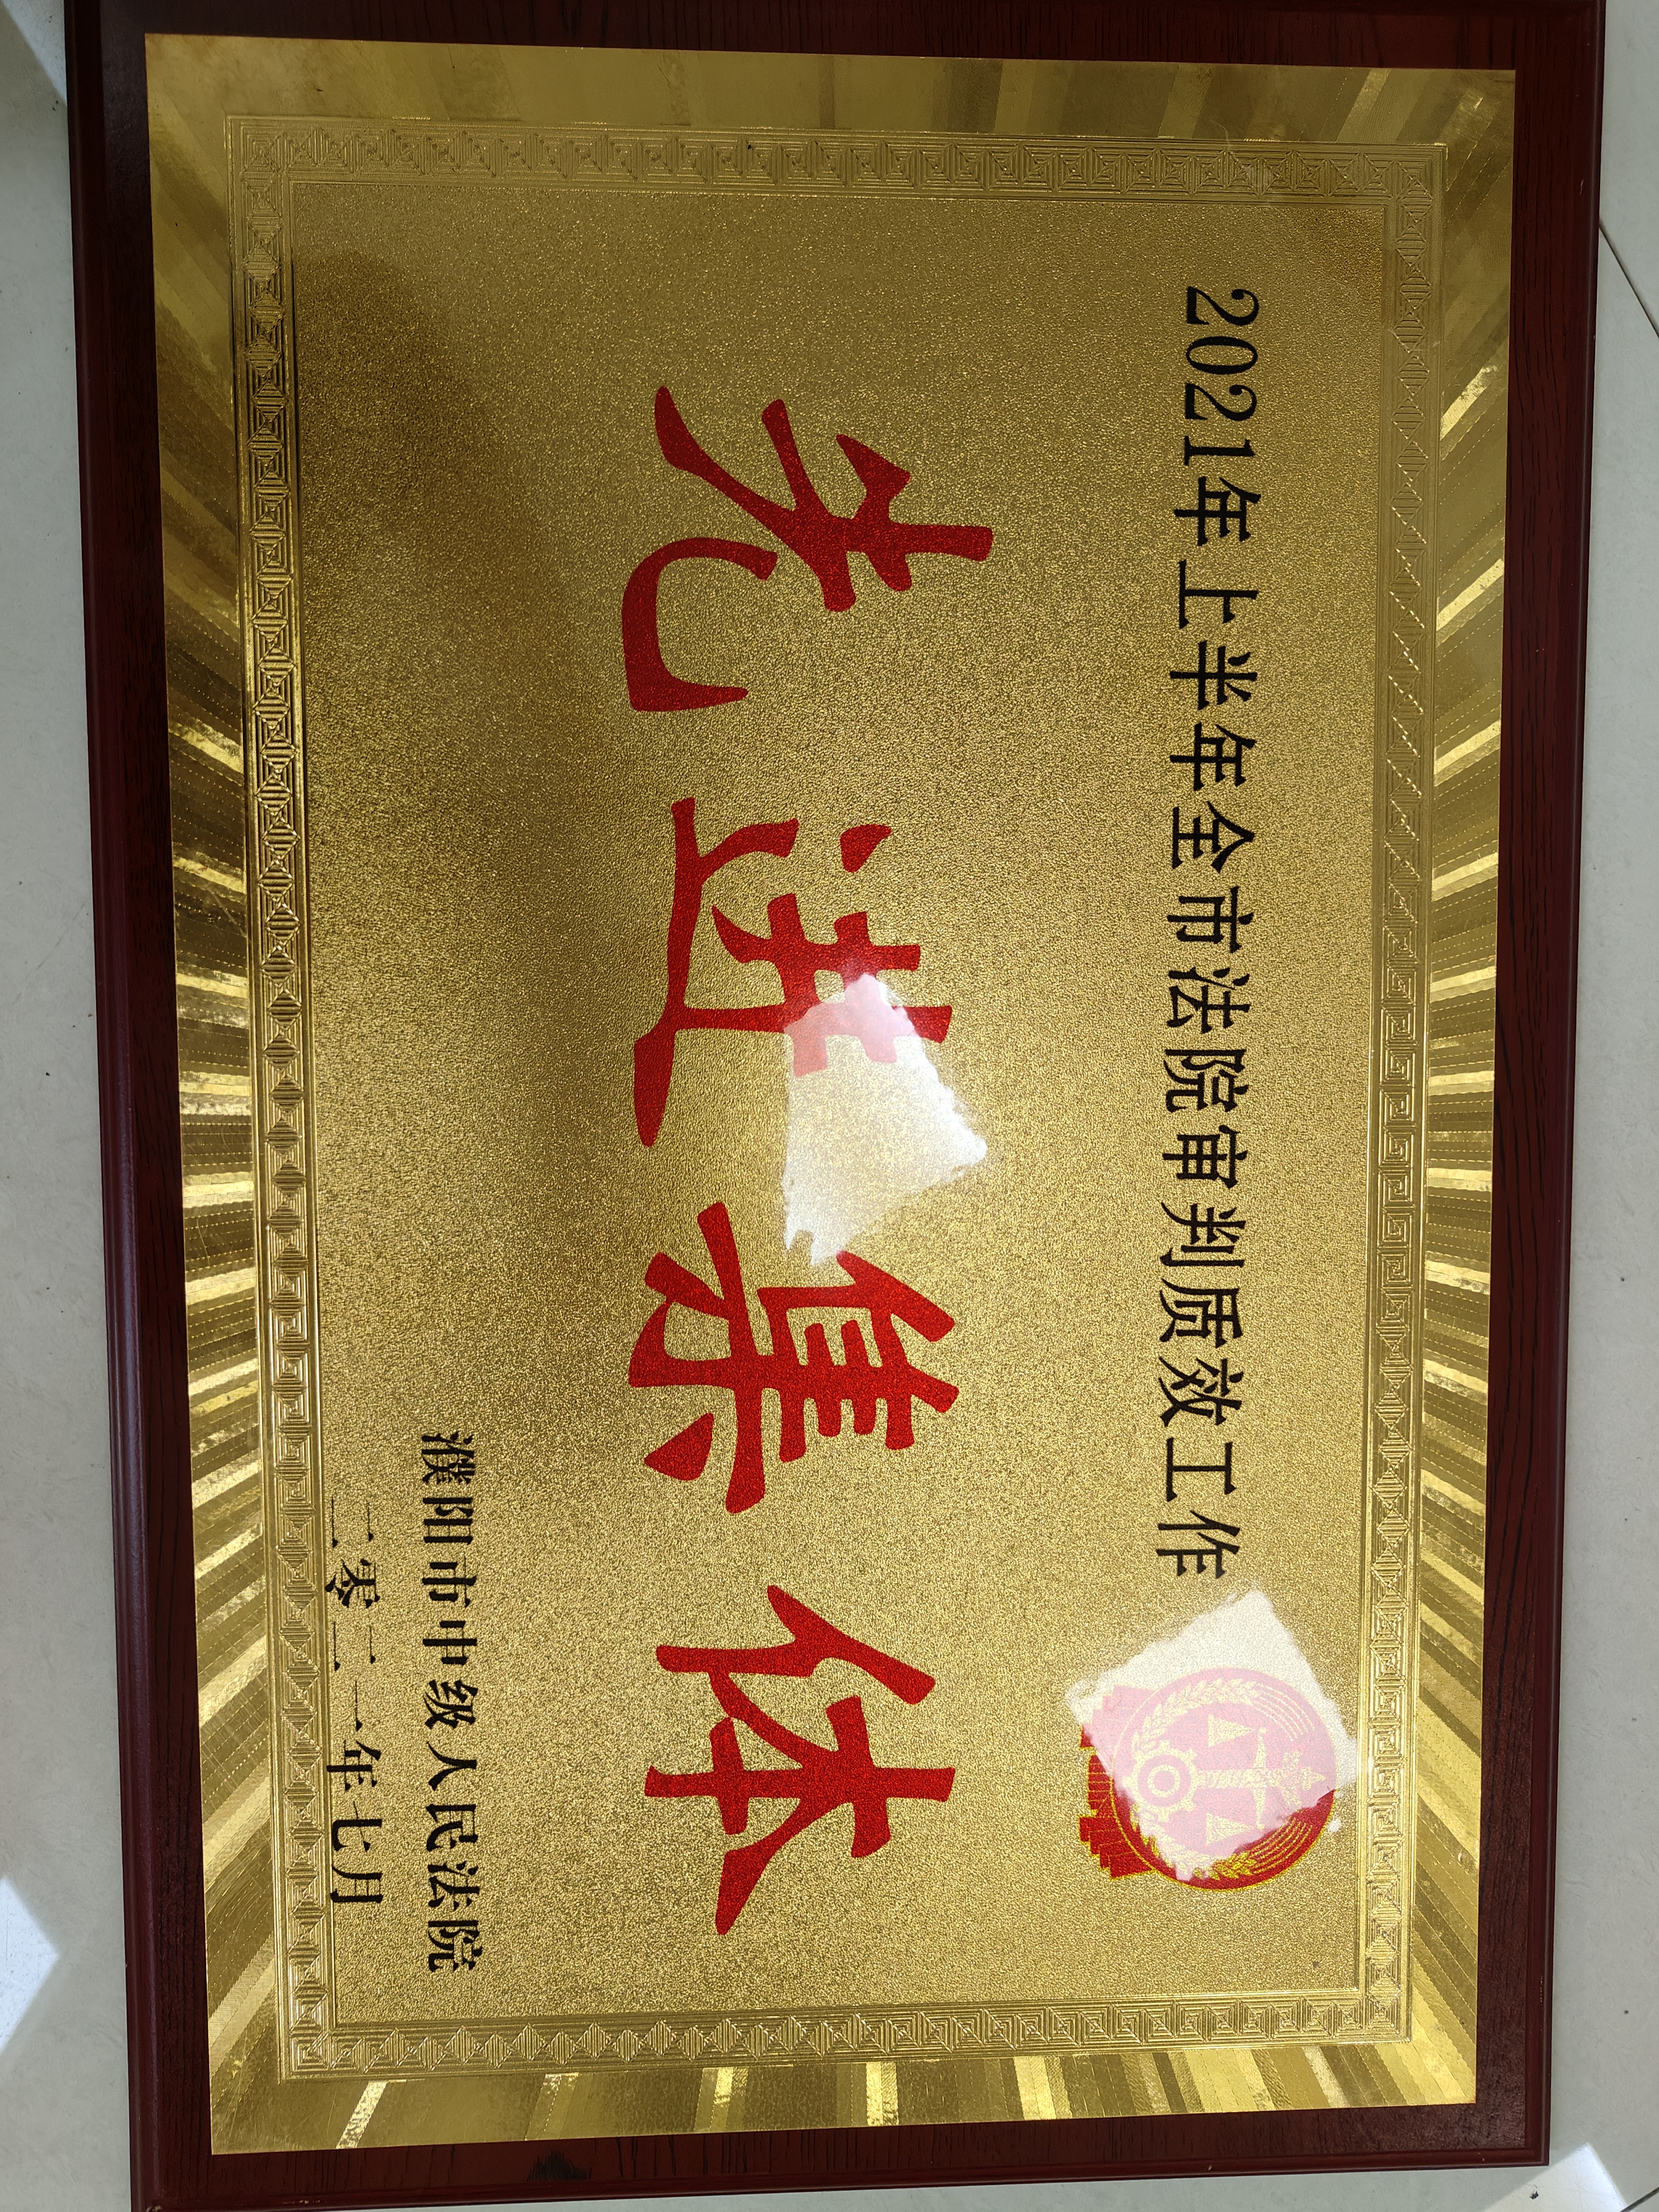 2021年上半年全市法院审判质效工作
先进集体
濮阳市中级人民法院
二零二一年七月